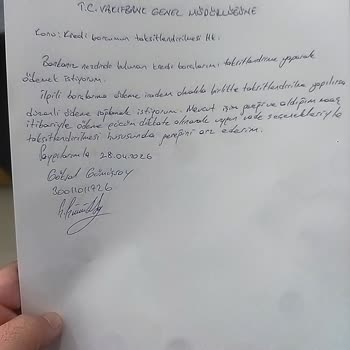 T.C. VAKIFBANK GENEL MÜDÜRLÜĞÜNE
Konu: Kredi borcumun taksitlendirilmesi Hk.
Bankanız nezdinde bulunan kredi borçlarımı taksitlendirme yaparak
ödemek istiyorum.
İlgili borçlarıma ödeme iradem olmakla birlikte taksitlendirilme yapılırsa
düzenli ödeme yapmak istiyorum. Mevcut işim gereği ve aldığım maaş
itibariyle ödeme gücüm dikkate alınarak uygun vade seçenekleriyle
taksitlendirilmesi hususunda gereğini arz ederim.
Saygılarımla 28.04.2026
Göksal Gümüşsoy
30011011926